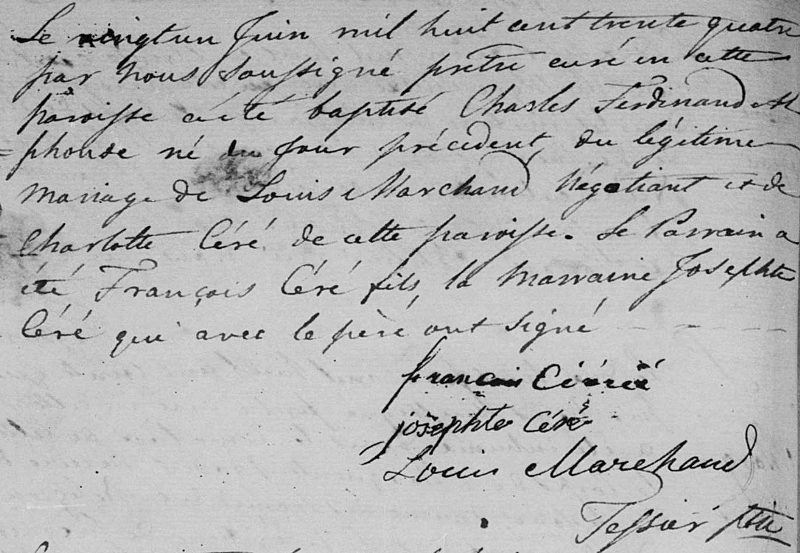 Le vingt un Juin mil huit cent trente quatre
par nous Soussigné prêtre curé en cette
paroisse a été baptisé Charles Ferdinand Al
phonse né du Jour précédent, du légitime
mariage de Louis Marchand Négotiant et de
Charlotte Céré de cette paroisse. Le Parrain a
été François Céré fils la Marraine Josephte
Céré qui avec le père ont signé
francois Céré
josephte Céré
Louis Marchand
Tessier ptre